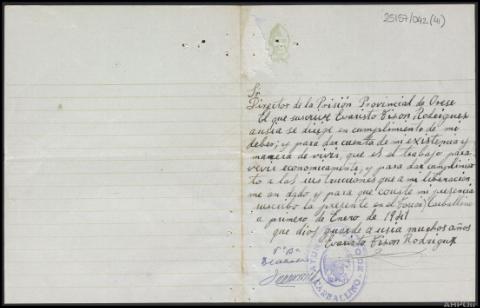 25157/042(41)
Sr.
Director de la Prisión Provincial de Orese
El que suscrive Evaristo Tison Rodriguez
a usia se dirige en cumplimiento de mi
deber, y para dar cuenta de mi existencia y
manera de vivir, que es el trabajo para
vivir economicamente, y para dar cumplimien
to a las instrucciones que a mi liberación
me an dado y para que conste mi presencia
suscribo la presente en el Carballino
a primero de Enero de 1941
que dios guarde a usia muchos años
Evaristo Tison Rodriguez
Vº Bº
CARBALLINO
AHPOUR